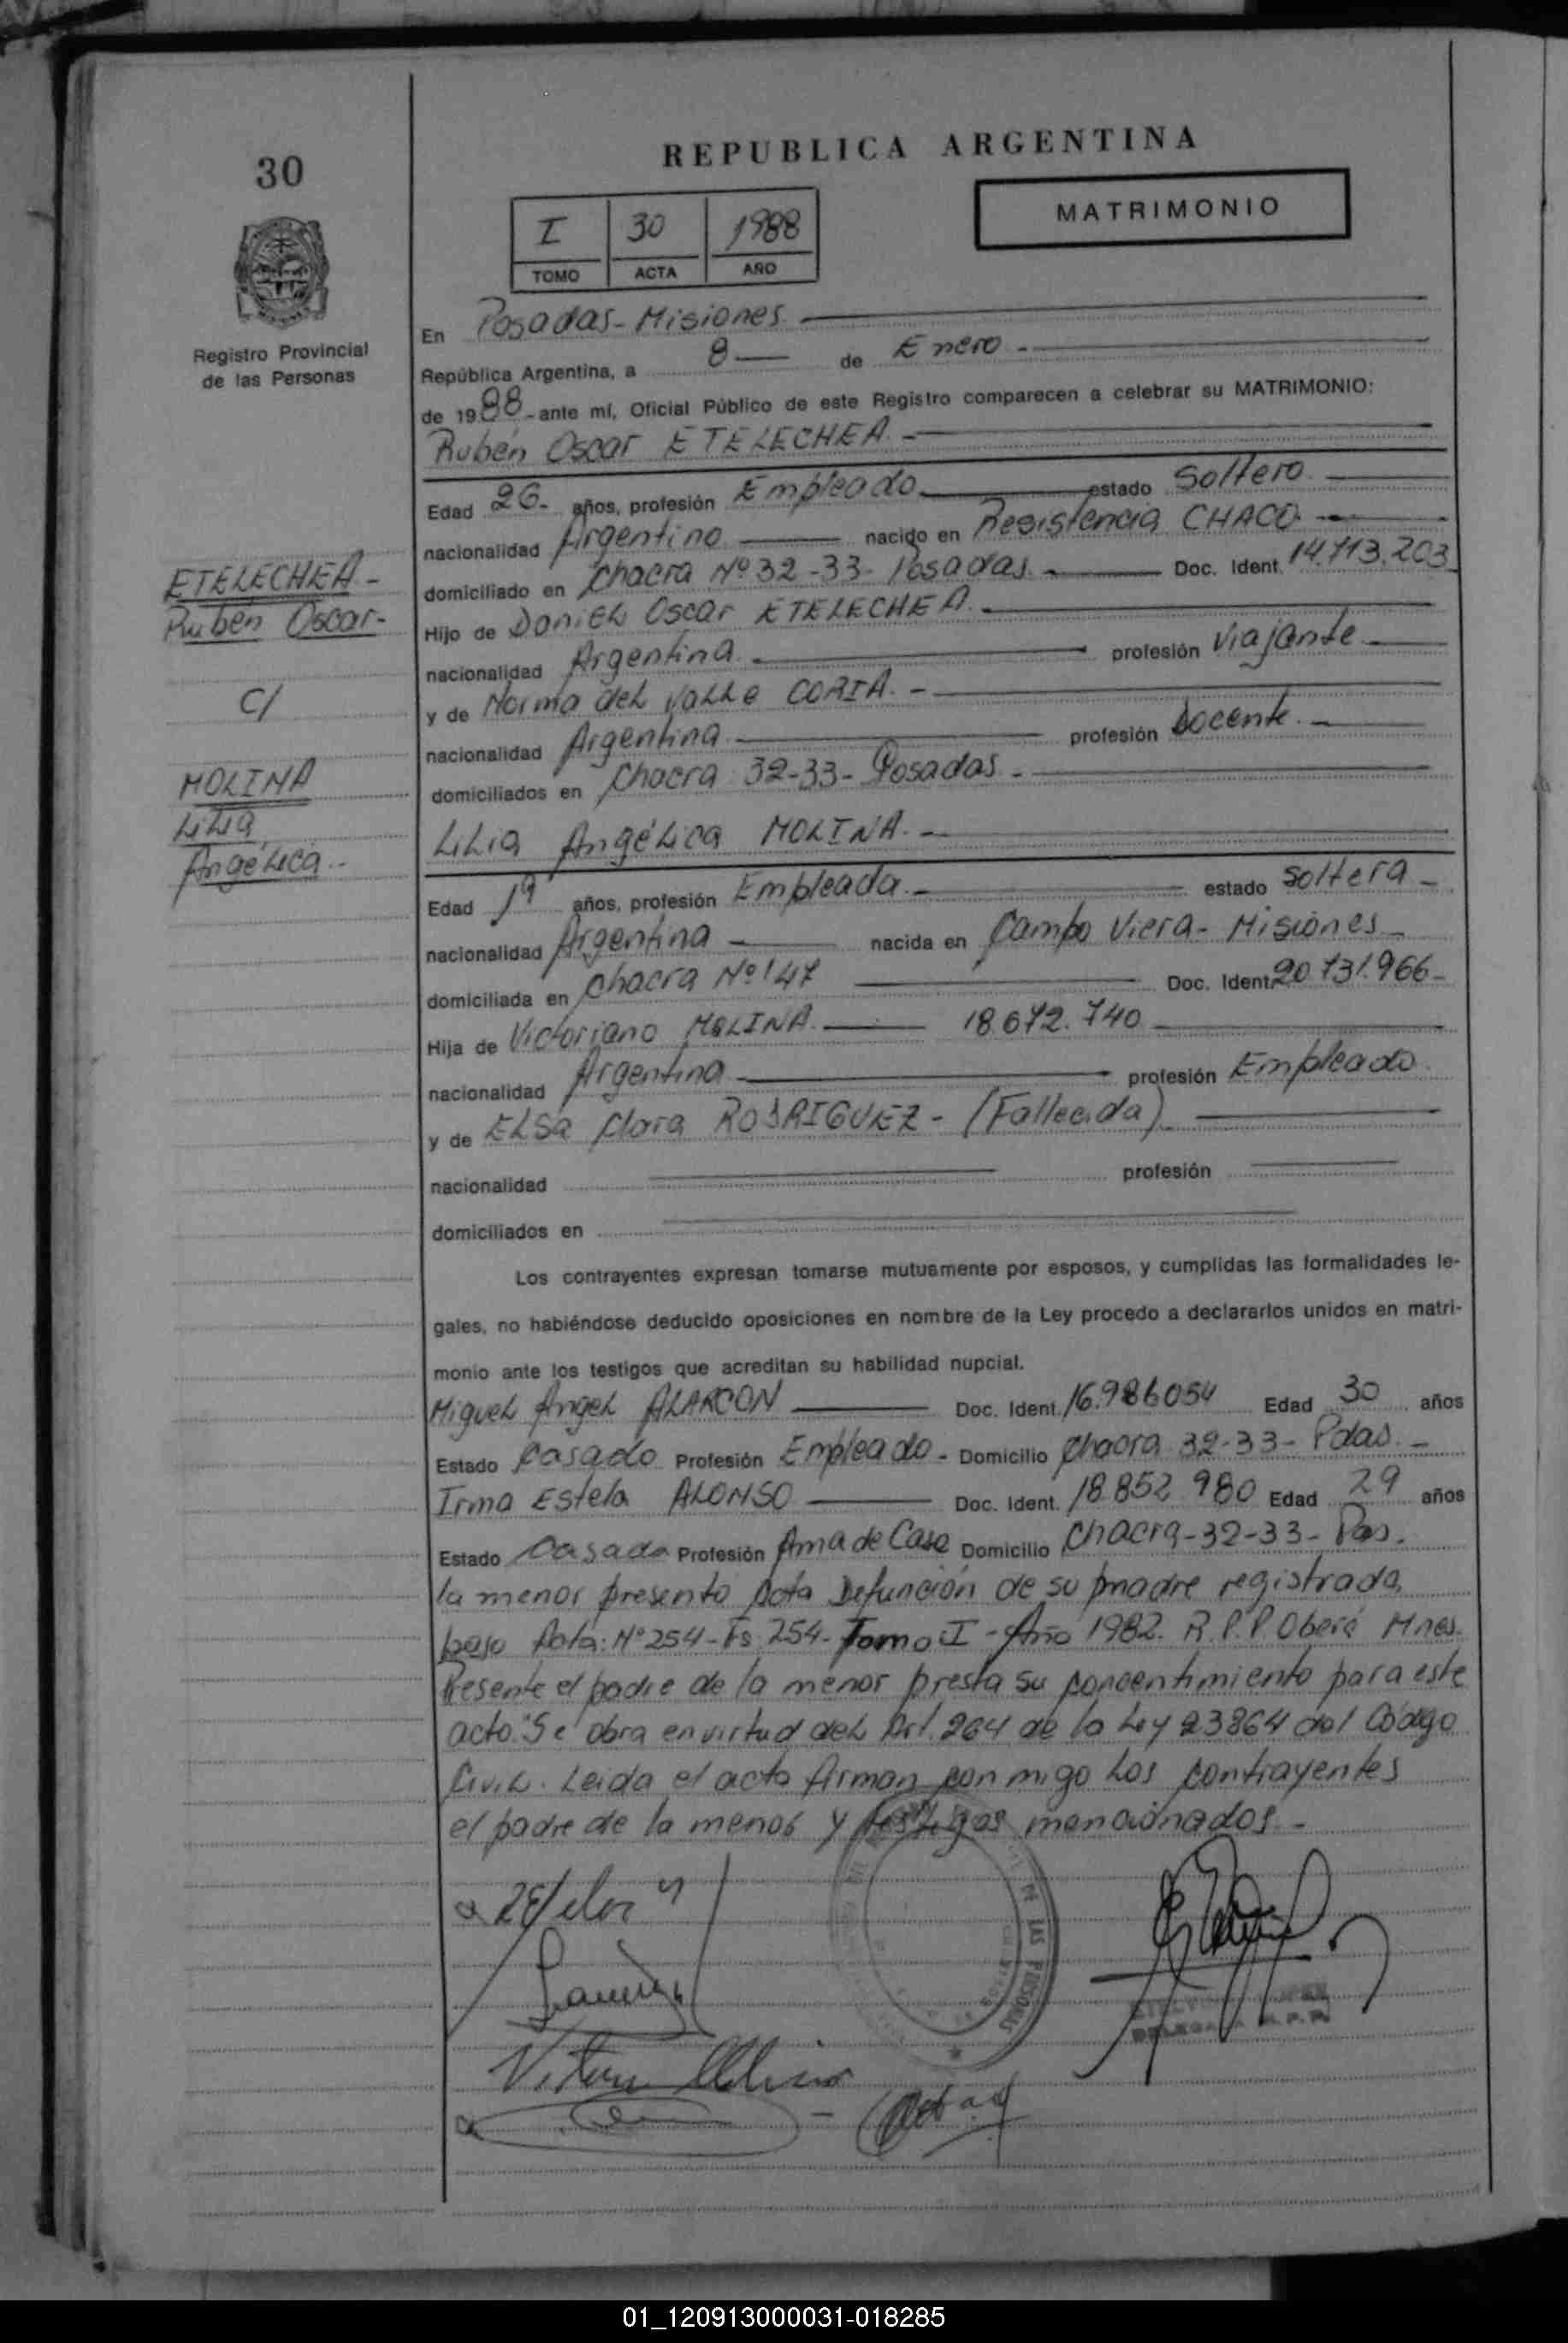 30
REPUBLICA ARGENTINA
MATRIMONIO
I 30 1988
TOMO ACTA AÑO
Registro Provincial
de las Personas
En Posadas-Misiones.
República Argentina, a 8 de Enero -
de 1988 - ante mí, Oficial Público de este Registro comparecen a celebrar su MATRIMONIO:
Rubén Oscar ETELECHEA. -
Edad 26- años, profesión Empleado estado Soltero.
nacionalidad Argentino nacido en Resistencia CHACO.
domiciliado en Chacra Nº 32-33- Posadas. Doc. Ident. 14.713.203
Hijo de Daniel Oscar ETELECHEA.
nacionalidad Argentina. profesión Viajante
y de Norma del Valle CORIA. -
nacionalidad Argentina profesión docente. -
domiciliados en Chacra 32-33- Posadas -
ETELECHEA -
Rubén Oscar-
C/
MOLINA
Lilia
Angélica -
Lilia Angélica MOLINA. -
Edad 19 años, profesión Empleada. - estado soltera -
nacionalidad Argentina - nacida en Campo Viera- Misiones -
domiciliada en Chacra Nº 147 Doc. Ident. 20.731.966-
Hija de Victoriano MOLINA. 18.672.740
nacionalidad Argentina profesión Empleado.
y de Elsa Flora RODRIGUEZ - (Fallecida)
nacionalidad profesión
domiciliados en
Los contrayentes expresan tomarse mutuamente por esposos, y cumplidas las formalidades le-
gales, no habiéndose deducido oposiciones en nombre de la Ley procedo a declararlos unidos en matri-
monio ante los testigos que acreditan su habilidad nupcial.
Miguel Angel ALARCON Doc. Ident. 16.986054 Edad 30 años
Estado Casado Profesión Empleado - Domicilio Chacra 32-33- Pdas. -
Irma Estela ALONSO Doc. Ident. 18.852.980 Edad 29 años
Estado Casada Profesión Ama de Casa Domicilio Chacra-32-33- Pas.
la menor presento Acta Defunción de su madre registrada,
bajo Acta: Nº 254-Fs 254- Tomo I - Año 1982. R.P.P. Oberá Mnes.
Presente el padre de la menor presta su concentimiento para este
acto. Se obra en virtud del Art. 264 de la Ley 23864 del Codigo
Civil. Leida el acta firman conmigo los contrayentes
el padre de la menor y testigos mencionados. -
LAS PERSONAS
DELEGADA R.P.P.
01_120913000031-018285